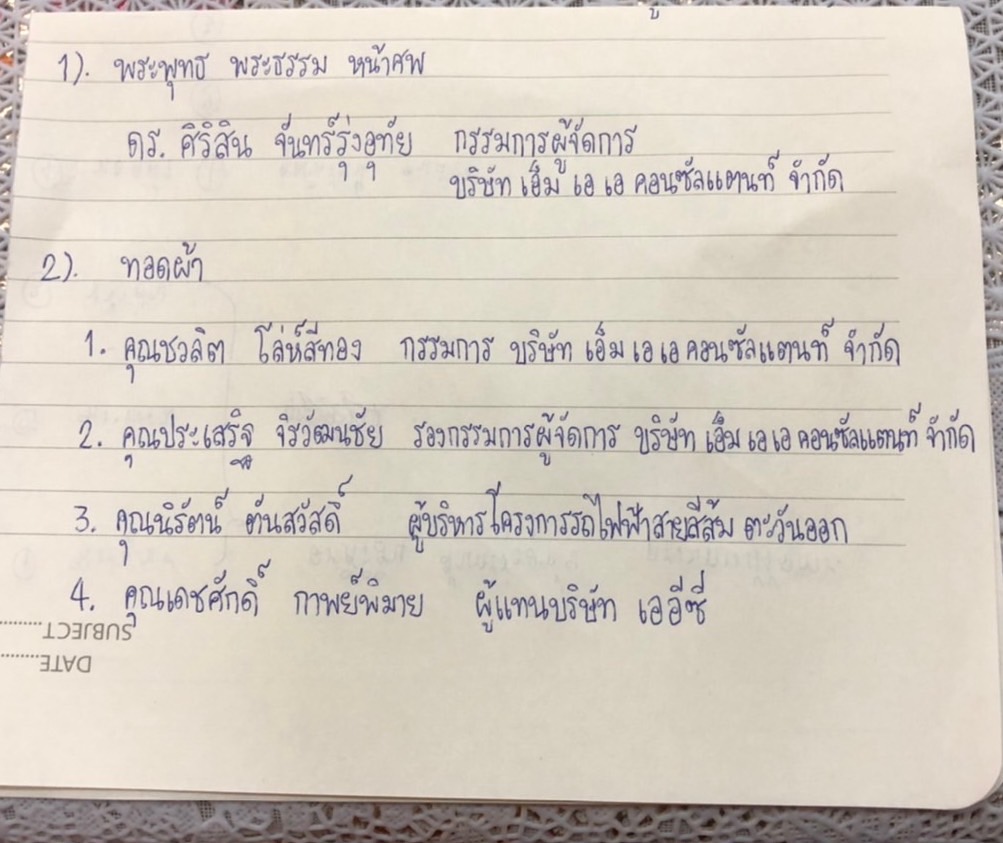 1). พระพุทธ พระธรรม หน้าศพ
ดร. ศิริสิน จันทร์รุ่งอุทัย กรรมการผู้จัดการ
บริษัท เอ็ม เอ เอ คอนซัลแตนท์ จำกัด
2). ทอดผ้า
1. คุณชวลิต โล่ห์สีทอง กรรมการ บริษัท เอ็ม เอ เอ คอนซัลแตนท์ จำกัด
2. คุณประเสริฐ จิรวัฒนชัย รองกรรมการผู้จัดการ บริษัท เอ็ม เอ เอ คอนซัลแตนท์ จำกัด
3. คุณนิรัตน์ ตันสวัสดิ์ ผู้บริหารโครงการรถไฟฟ้าสายสีส้ม ตะวันออก
4. คุณเดชศักดิ์ กาพย์พิมาย ผู้แทนบริษัท เออีซี
SUBJECT
DATE